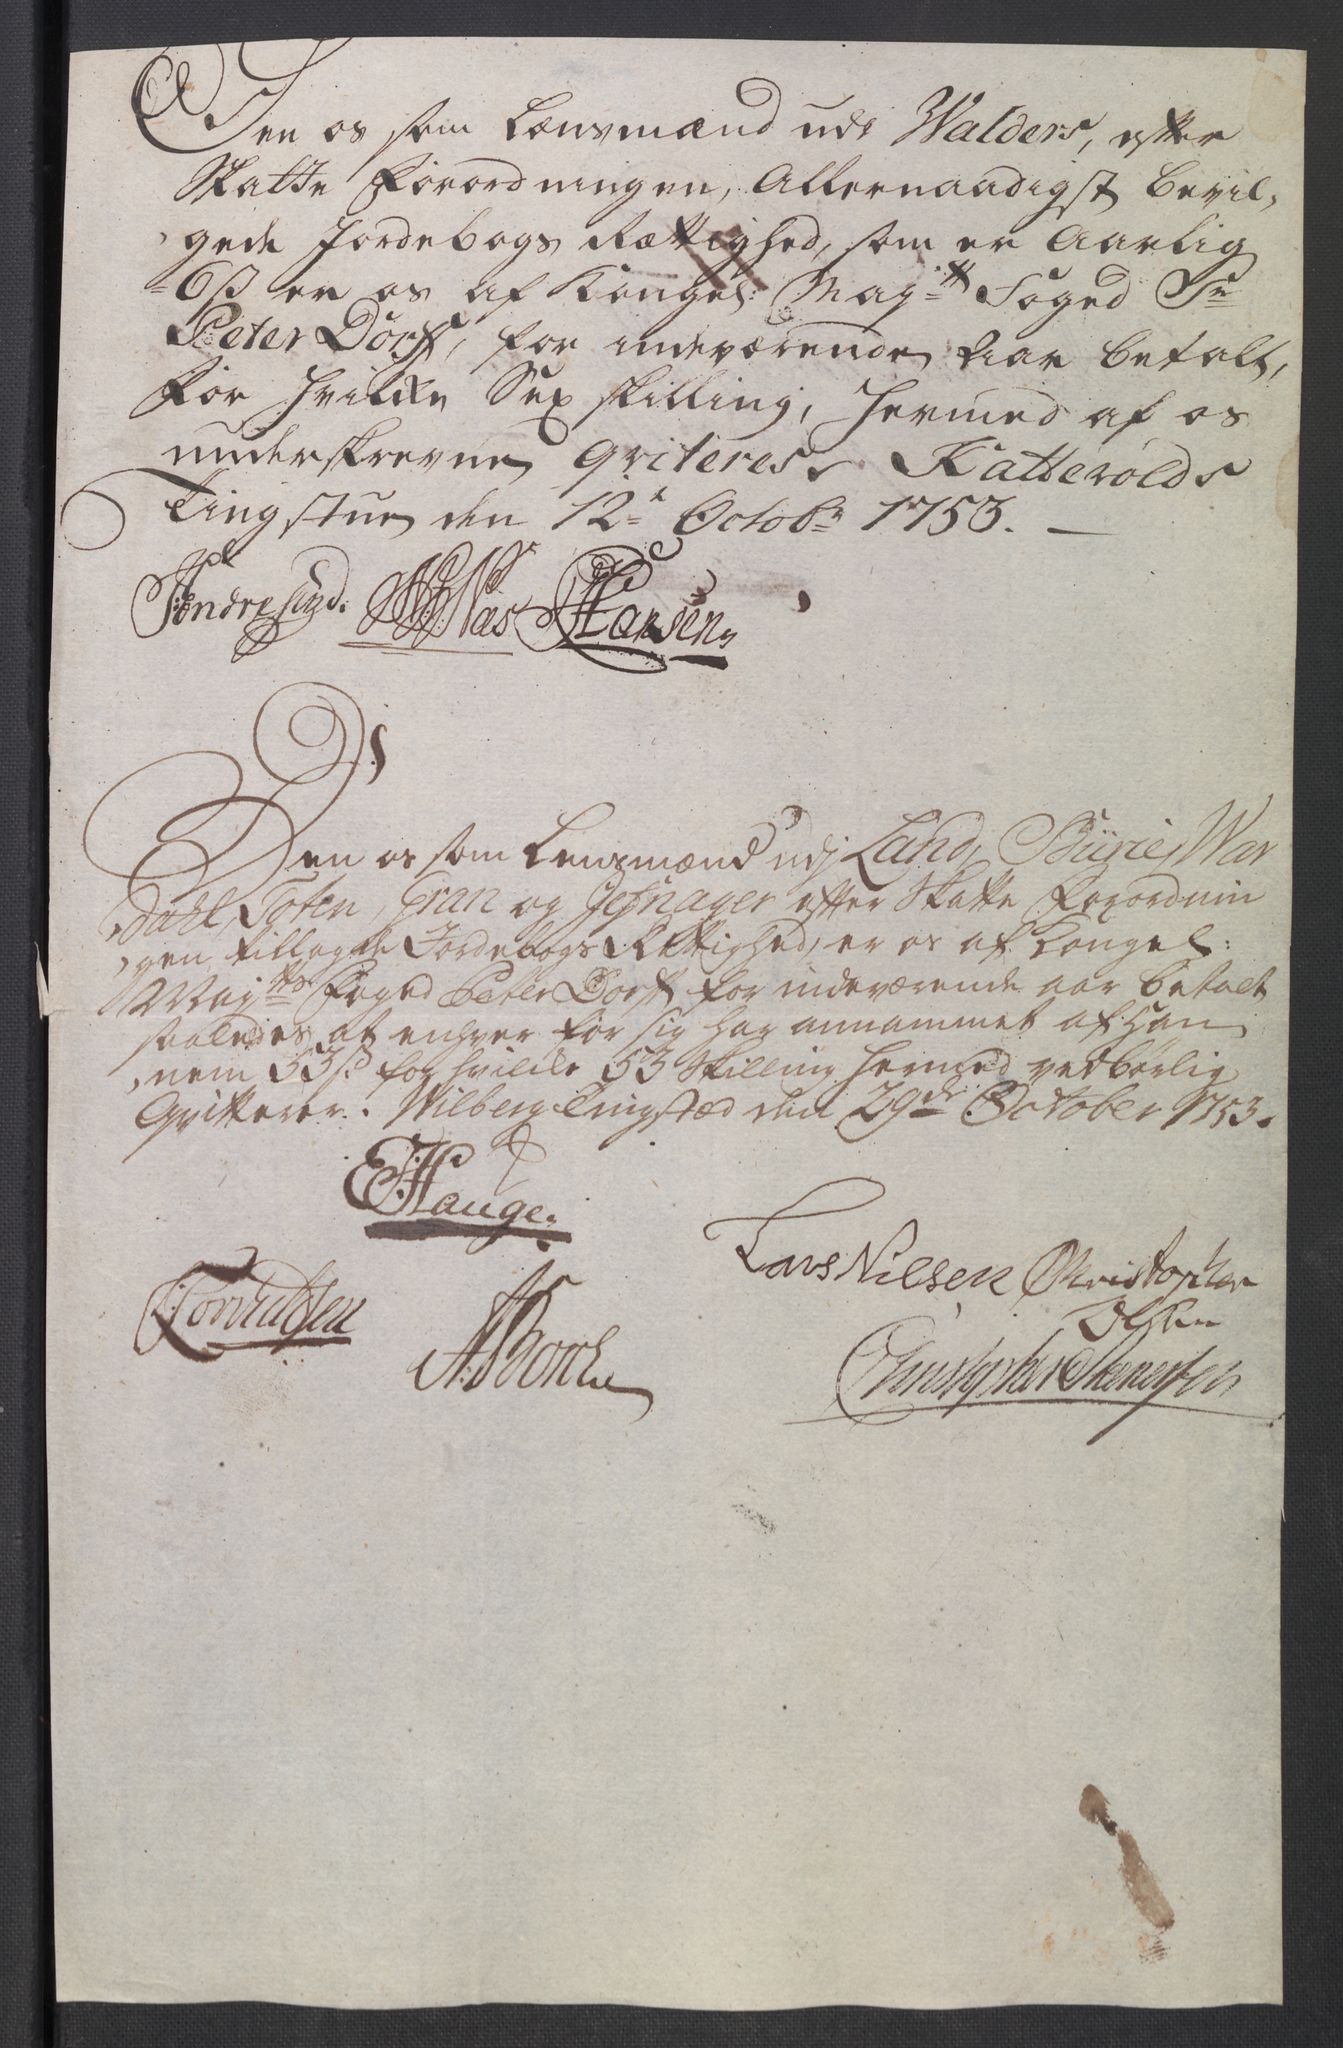 Den os som Lænsmænd udi Walders, efter
Skatte Forordningen, Allernaadigst bevil,
gede Jordebogs Rettighed, som er Aarlig
6 s er os af Kongel: May:tt Foged Sr
Peter Dorff, for indeværende Aar betalt,
for hvilke Sex skilling, hermed af os
underskrevne qviteres. Katterolds
Tingstue den 12te Octobr 1753.
Hansen
Den os som Lensmænd udj Land, Biirie, War
dahl, Toten, Gran og Jefnager efter Skatte Forordnin
gen tillagde Jordebogs Rettighed, er os af Kongel:
May:tts Foged Peter Dorff for indeværende aar betalt
saaledes at enhver for sig har annammet af Han
nem 53 s. for hvilke 53 Skilling hermed vedbørlig
Qvitterer. Wilberg Tingstæd den 29de October 1753.
E Hauge.
Lars Nilsen Christopher
Olsen
A Borch
Christopher Stenersen